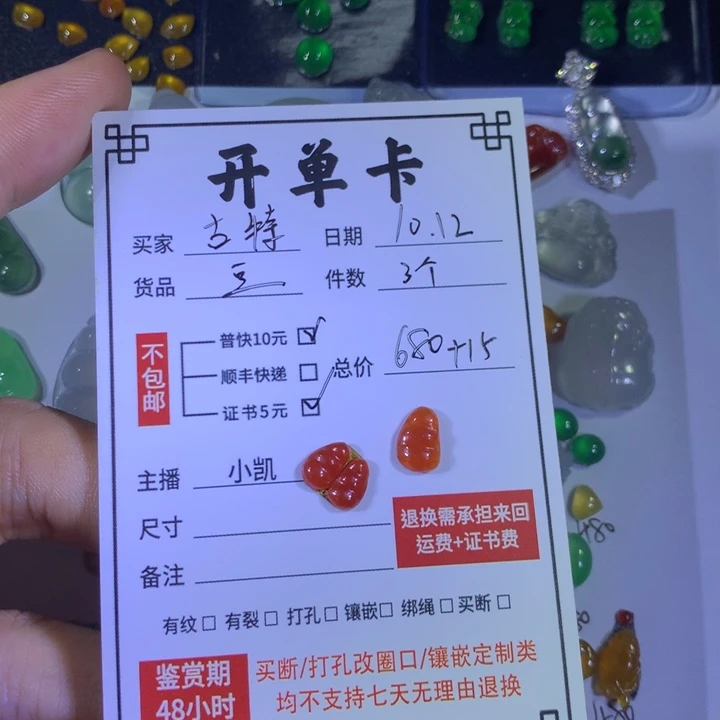 开单卡
买家 古特 日期 10.12
货品 豆 件数 3个
不包邮
普快10元
顺丰快递
证书5元
总价 680+15
主播 小凯
尺寸
退换需承担来回
运费+证书费
备注
有纹 有裂 打孔 镶嵌 绑绳 买断
鉴赏期
48小时
买断/打孔改圈口/镶嵌定制类
均不支持七天无理由退换